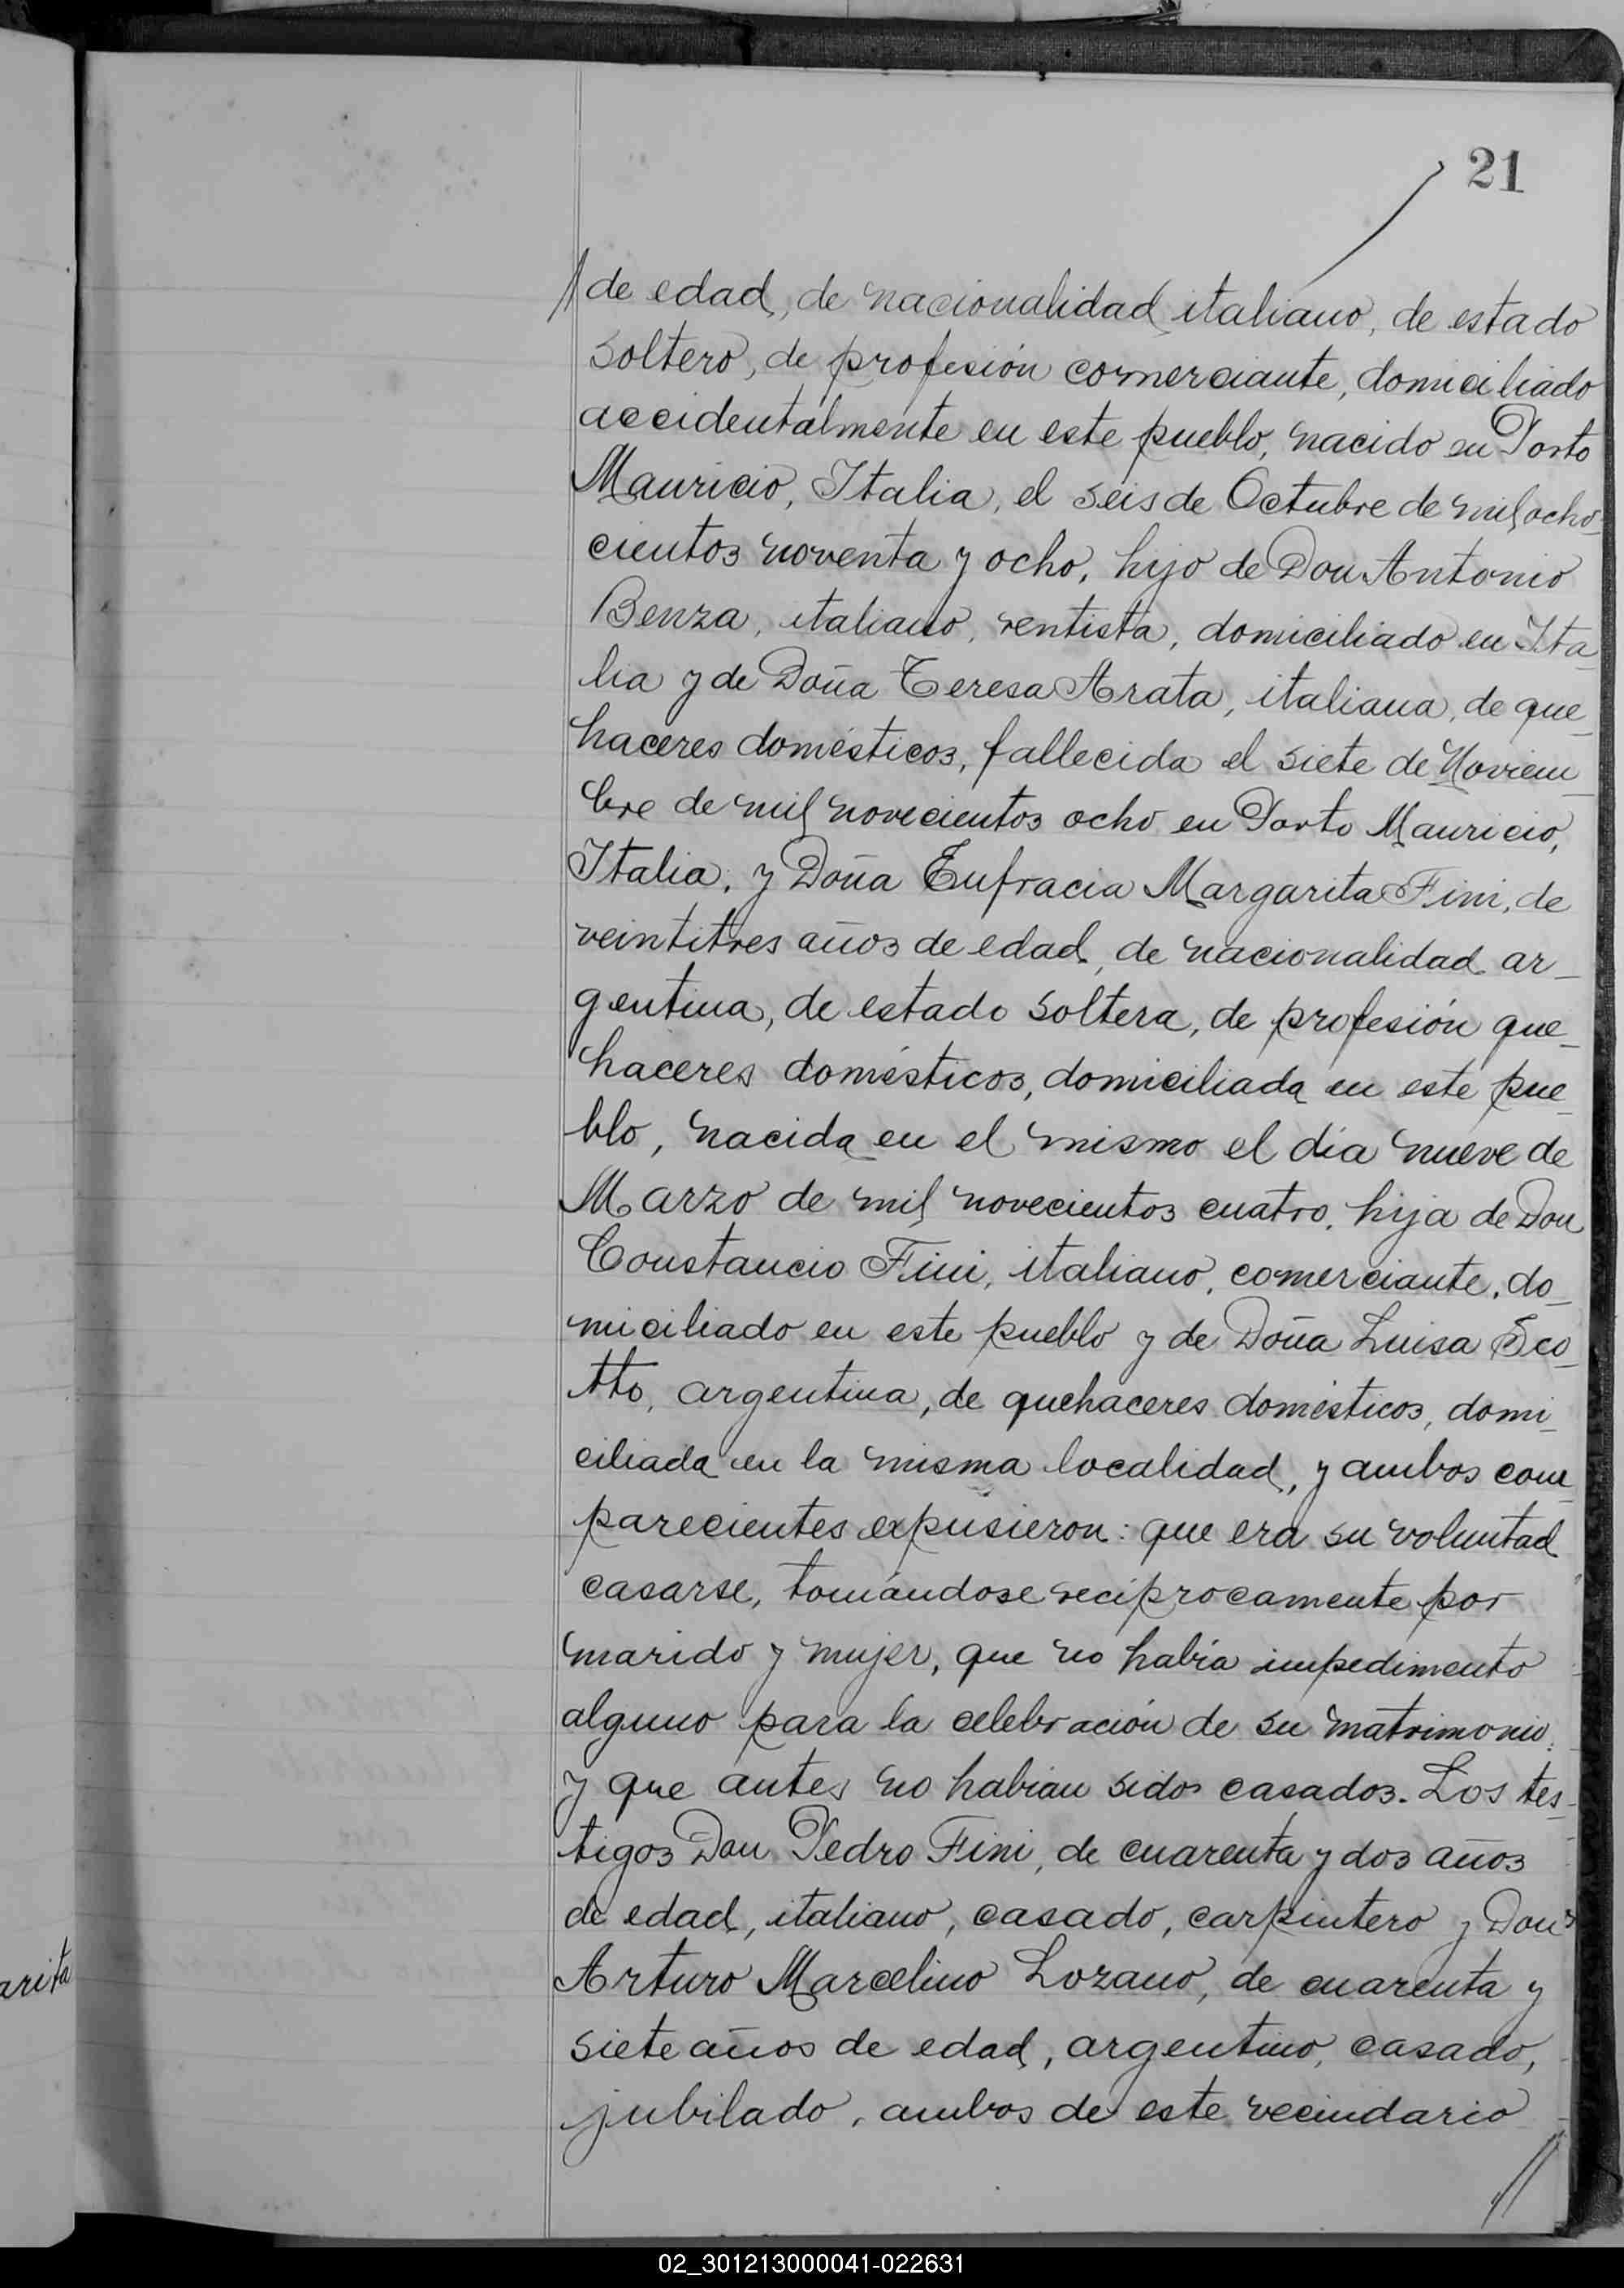 21
// de edad, de nacionalidad italiano, de estado
soltero, de profesión comerciante, domiciliado
accidentalmente en este pueblo, nacido en Porto
Mauricio, Italia, el seis de Octubre de mil ocho_
cientos noventa y ocho, hijo de Don Antonio
Benza, italiano, rentista, domiciliado en Ita_
lia y de Doña Teresa Arata, italiana, de que_
haceres domésticos, fallecida el siete de Noviem_
bre de mil novecientos ocho en Porto Mauricio,
Italia; y Doña Eufracia Margarita Fini, de
veintitres años de edad, de nacionalidad ar_
gentina, de estado soltera, de profesión que_
haceres domésticos, domiciliada en este pue_
blo, nacida en el mismo el día nueve de
Marzo de mil novecientos cuatro, hija de Don
Constancio Fini, italiano, comerciante, do_
miciliado en este pueblo y de Doña Luisa Sco_
tto, argentina, de quehaceres domésticos, domi_
ciliada en la misma localidad, y ambos com_
parecientes expusieron: que era su voluntad
casarse, tomándose recíprocamente por
marido y mujer, que no había impedimento
alguno para la celebración de su matrimonio
y que antes no habían sido casados. Los tes_
tigos Don Pedro Fini, de cuarenta y dos años
de edad, italiano, casado, carpintero y Don
arita
Arturo Marcelino Lozano, de cuarenta y
siete años de edad, argentino, casado,
jubilado, ambos de este vecindario
//
02_301213000041-022631